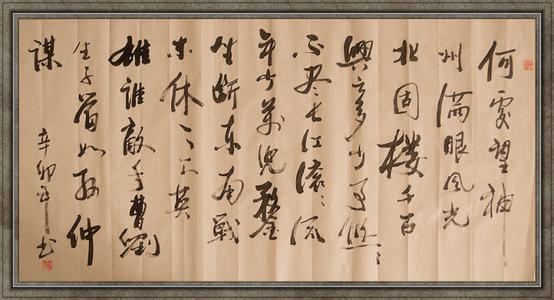 何處望神
州滿眼風光
北固樓千古
興亡多少事悠〻
不盡长江滚〻流
年少萬兜鍪
坐斷东南戰
未休天下英
雄誰敵手曹劉
生子當如孫仲
謀
辛卯年书